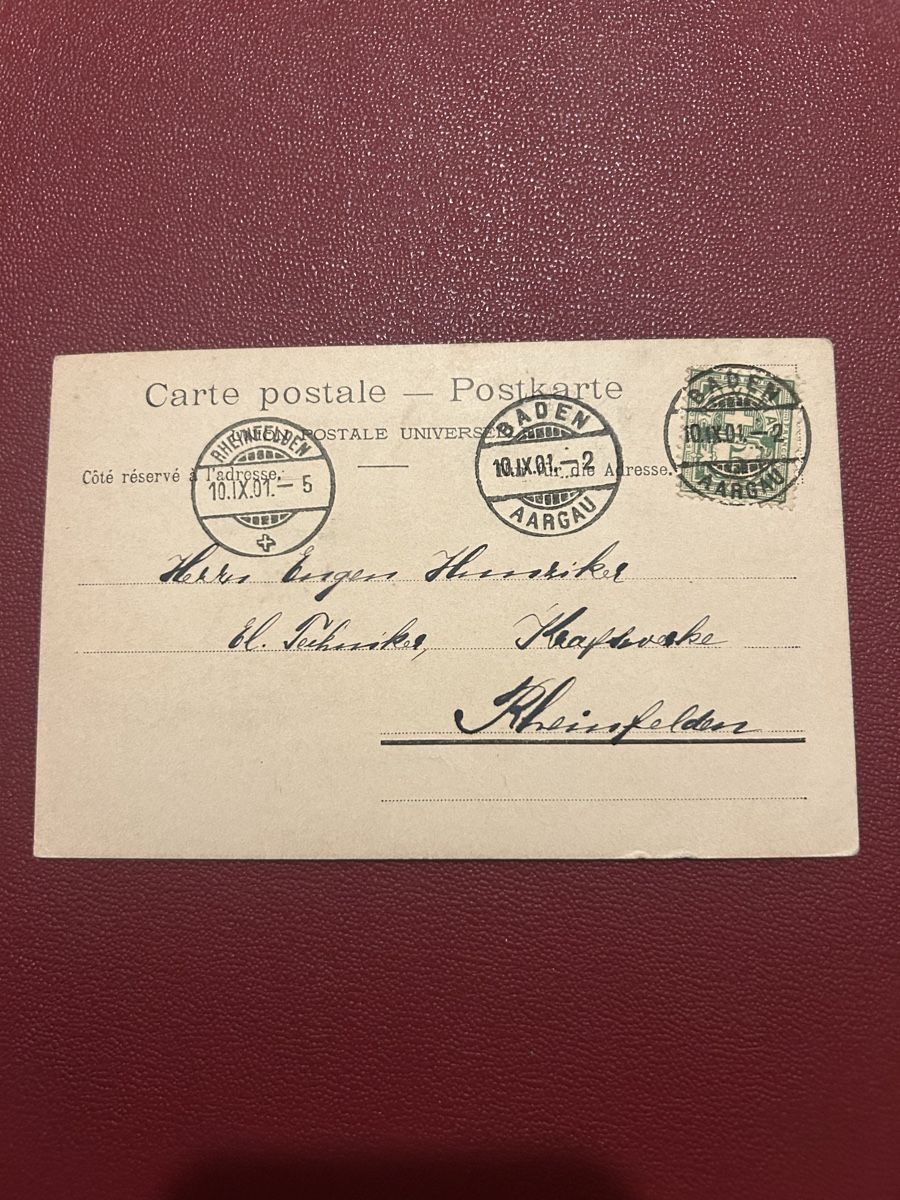 Carte postale — Postkarte
POSTALE UNIVERSE
Côté réservé à l'adresse.
für die Adresse.
RHEINFELDEN
10.IX.01.–5
BADEN
10.IX.01.–2
AARGAU
BADEN
10.IX.01.–2
AARGAU
Herrn Eugen Hunziker
El. Techniker, Kraftwerke
Rheinfelden